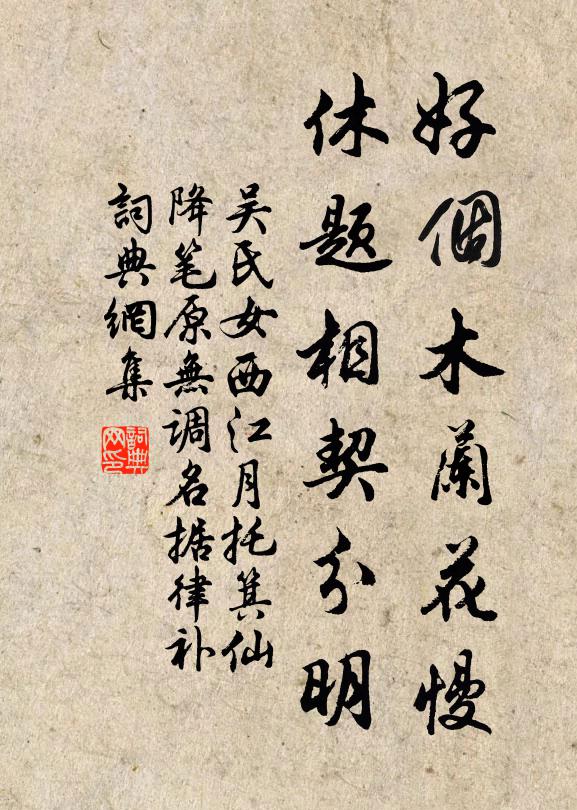 好個木蘭花慢
休題相契分明
吴氏女西江月托箕仙
降笔原無调名据律补
詞典網集
詞典网印